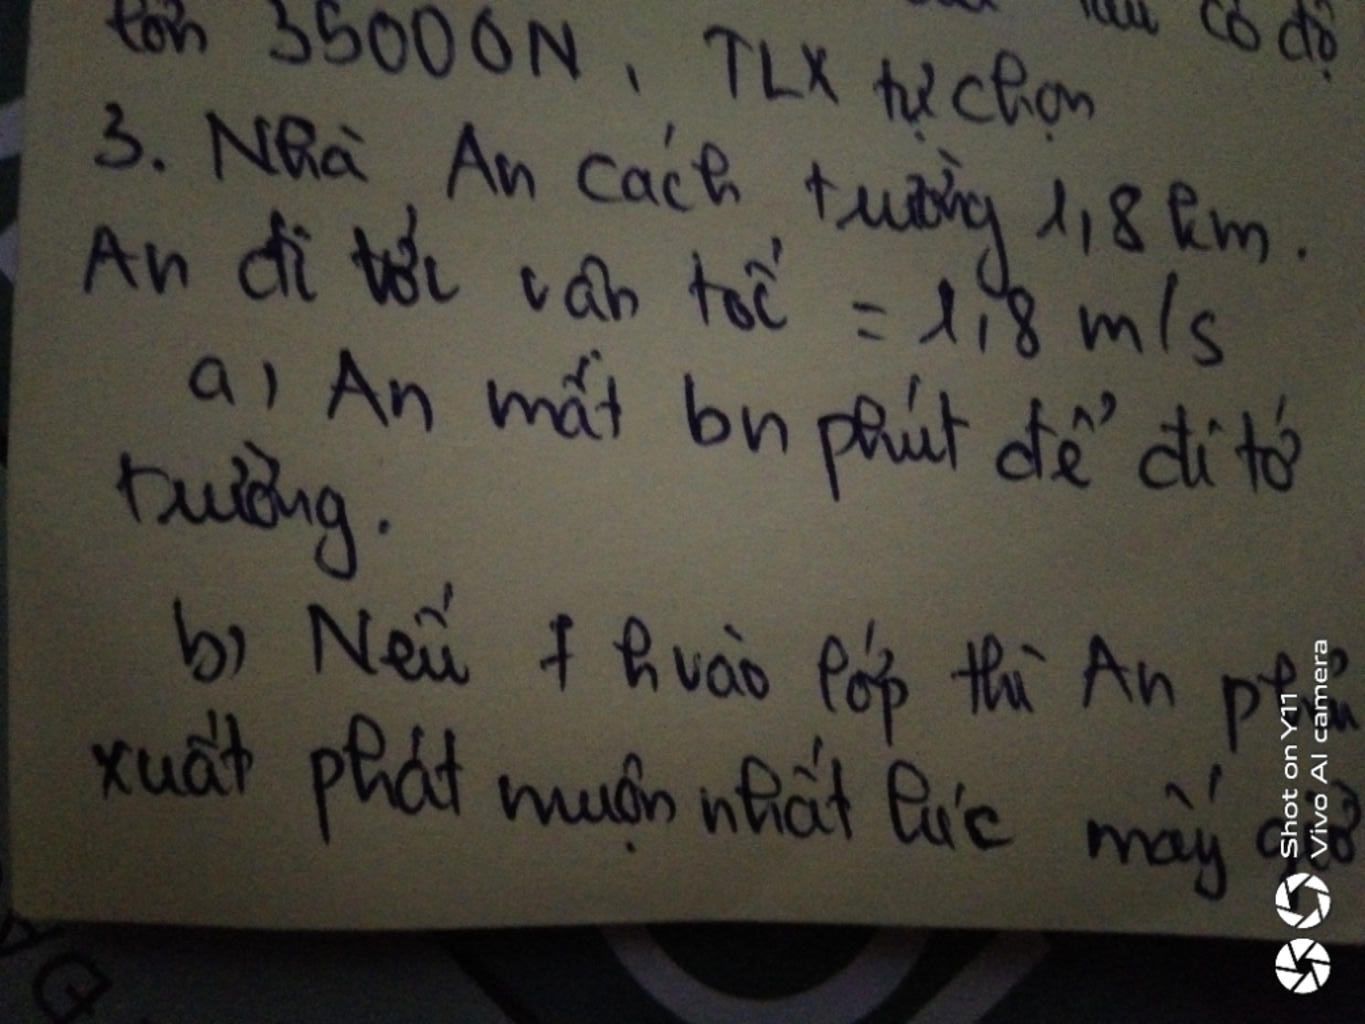 tôn 35000N, TLX tự chọn
có độ
3. Nhà An cách trường 1,8 km.
An đi tới vân tốc = 1,8 m/s
a) An mất bn phút để đi tớ
trường.
b) Nếu 7 h vào lớp thì An
xuất phát muộn nhất lúc mấy giờ
Shot on Y11
Vivo AI camera